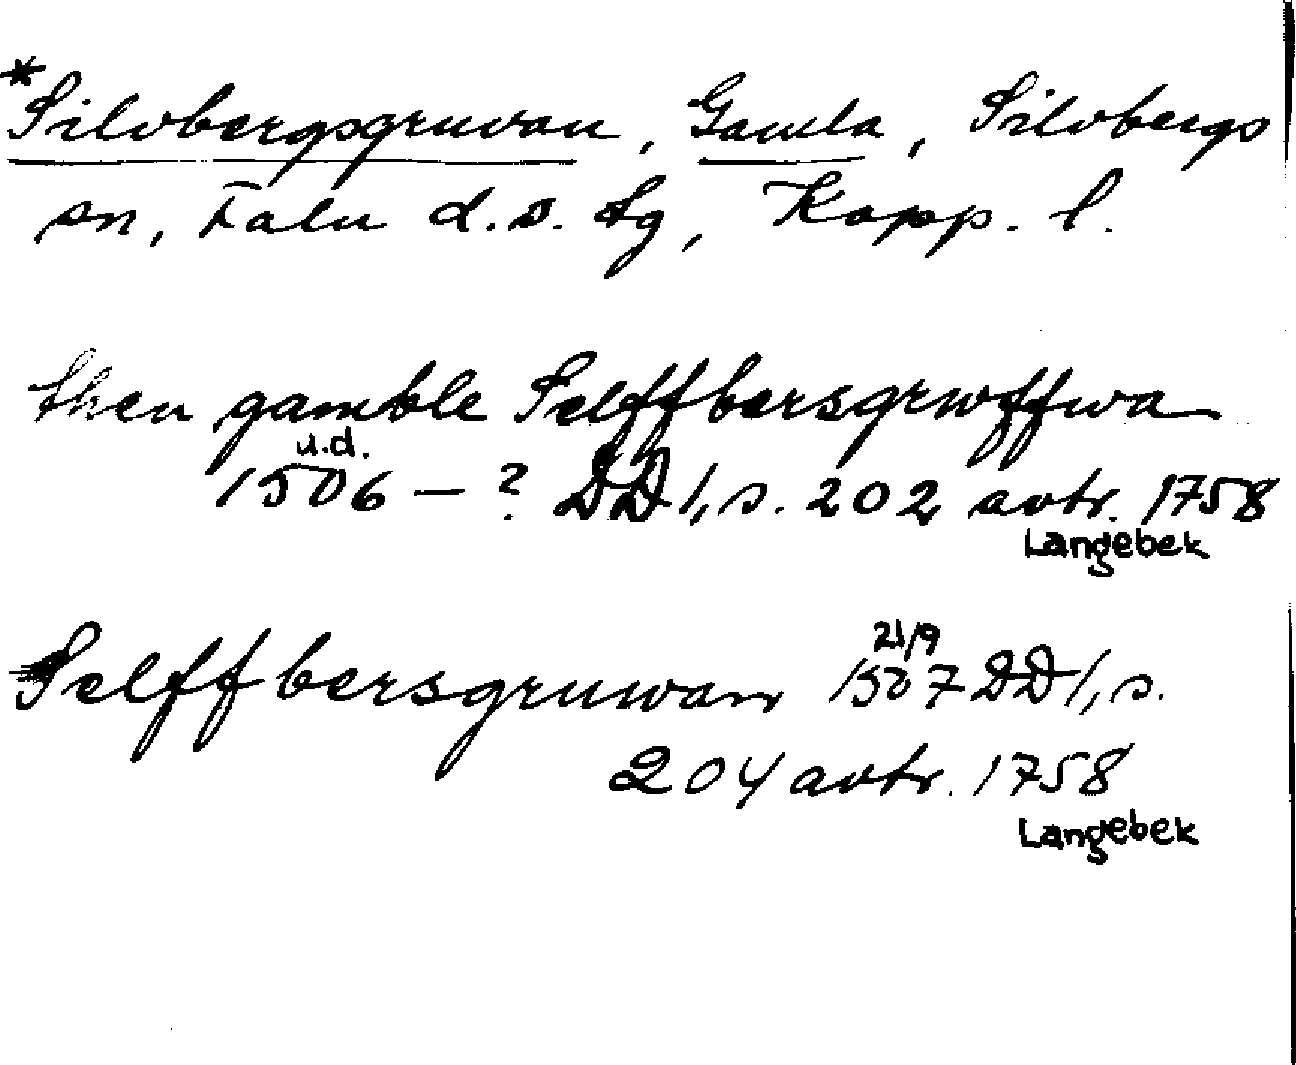 *Silvbergsgruvan, Gamla, Silvbergs
sn, Falu d.s. lg, Kopp. l.
then gamble Selffbersgrwffwa
u.d.
1506 – ? DD 1, s. 202 avtr. 1758
Langebek
Selffbersgruwan 1507 DD 1, s.
21/9
204 avtr. 1758
Langebek